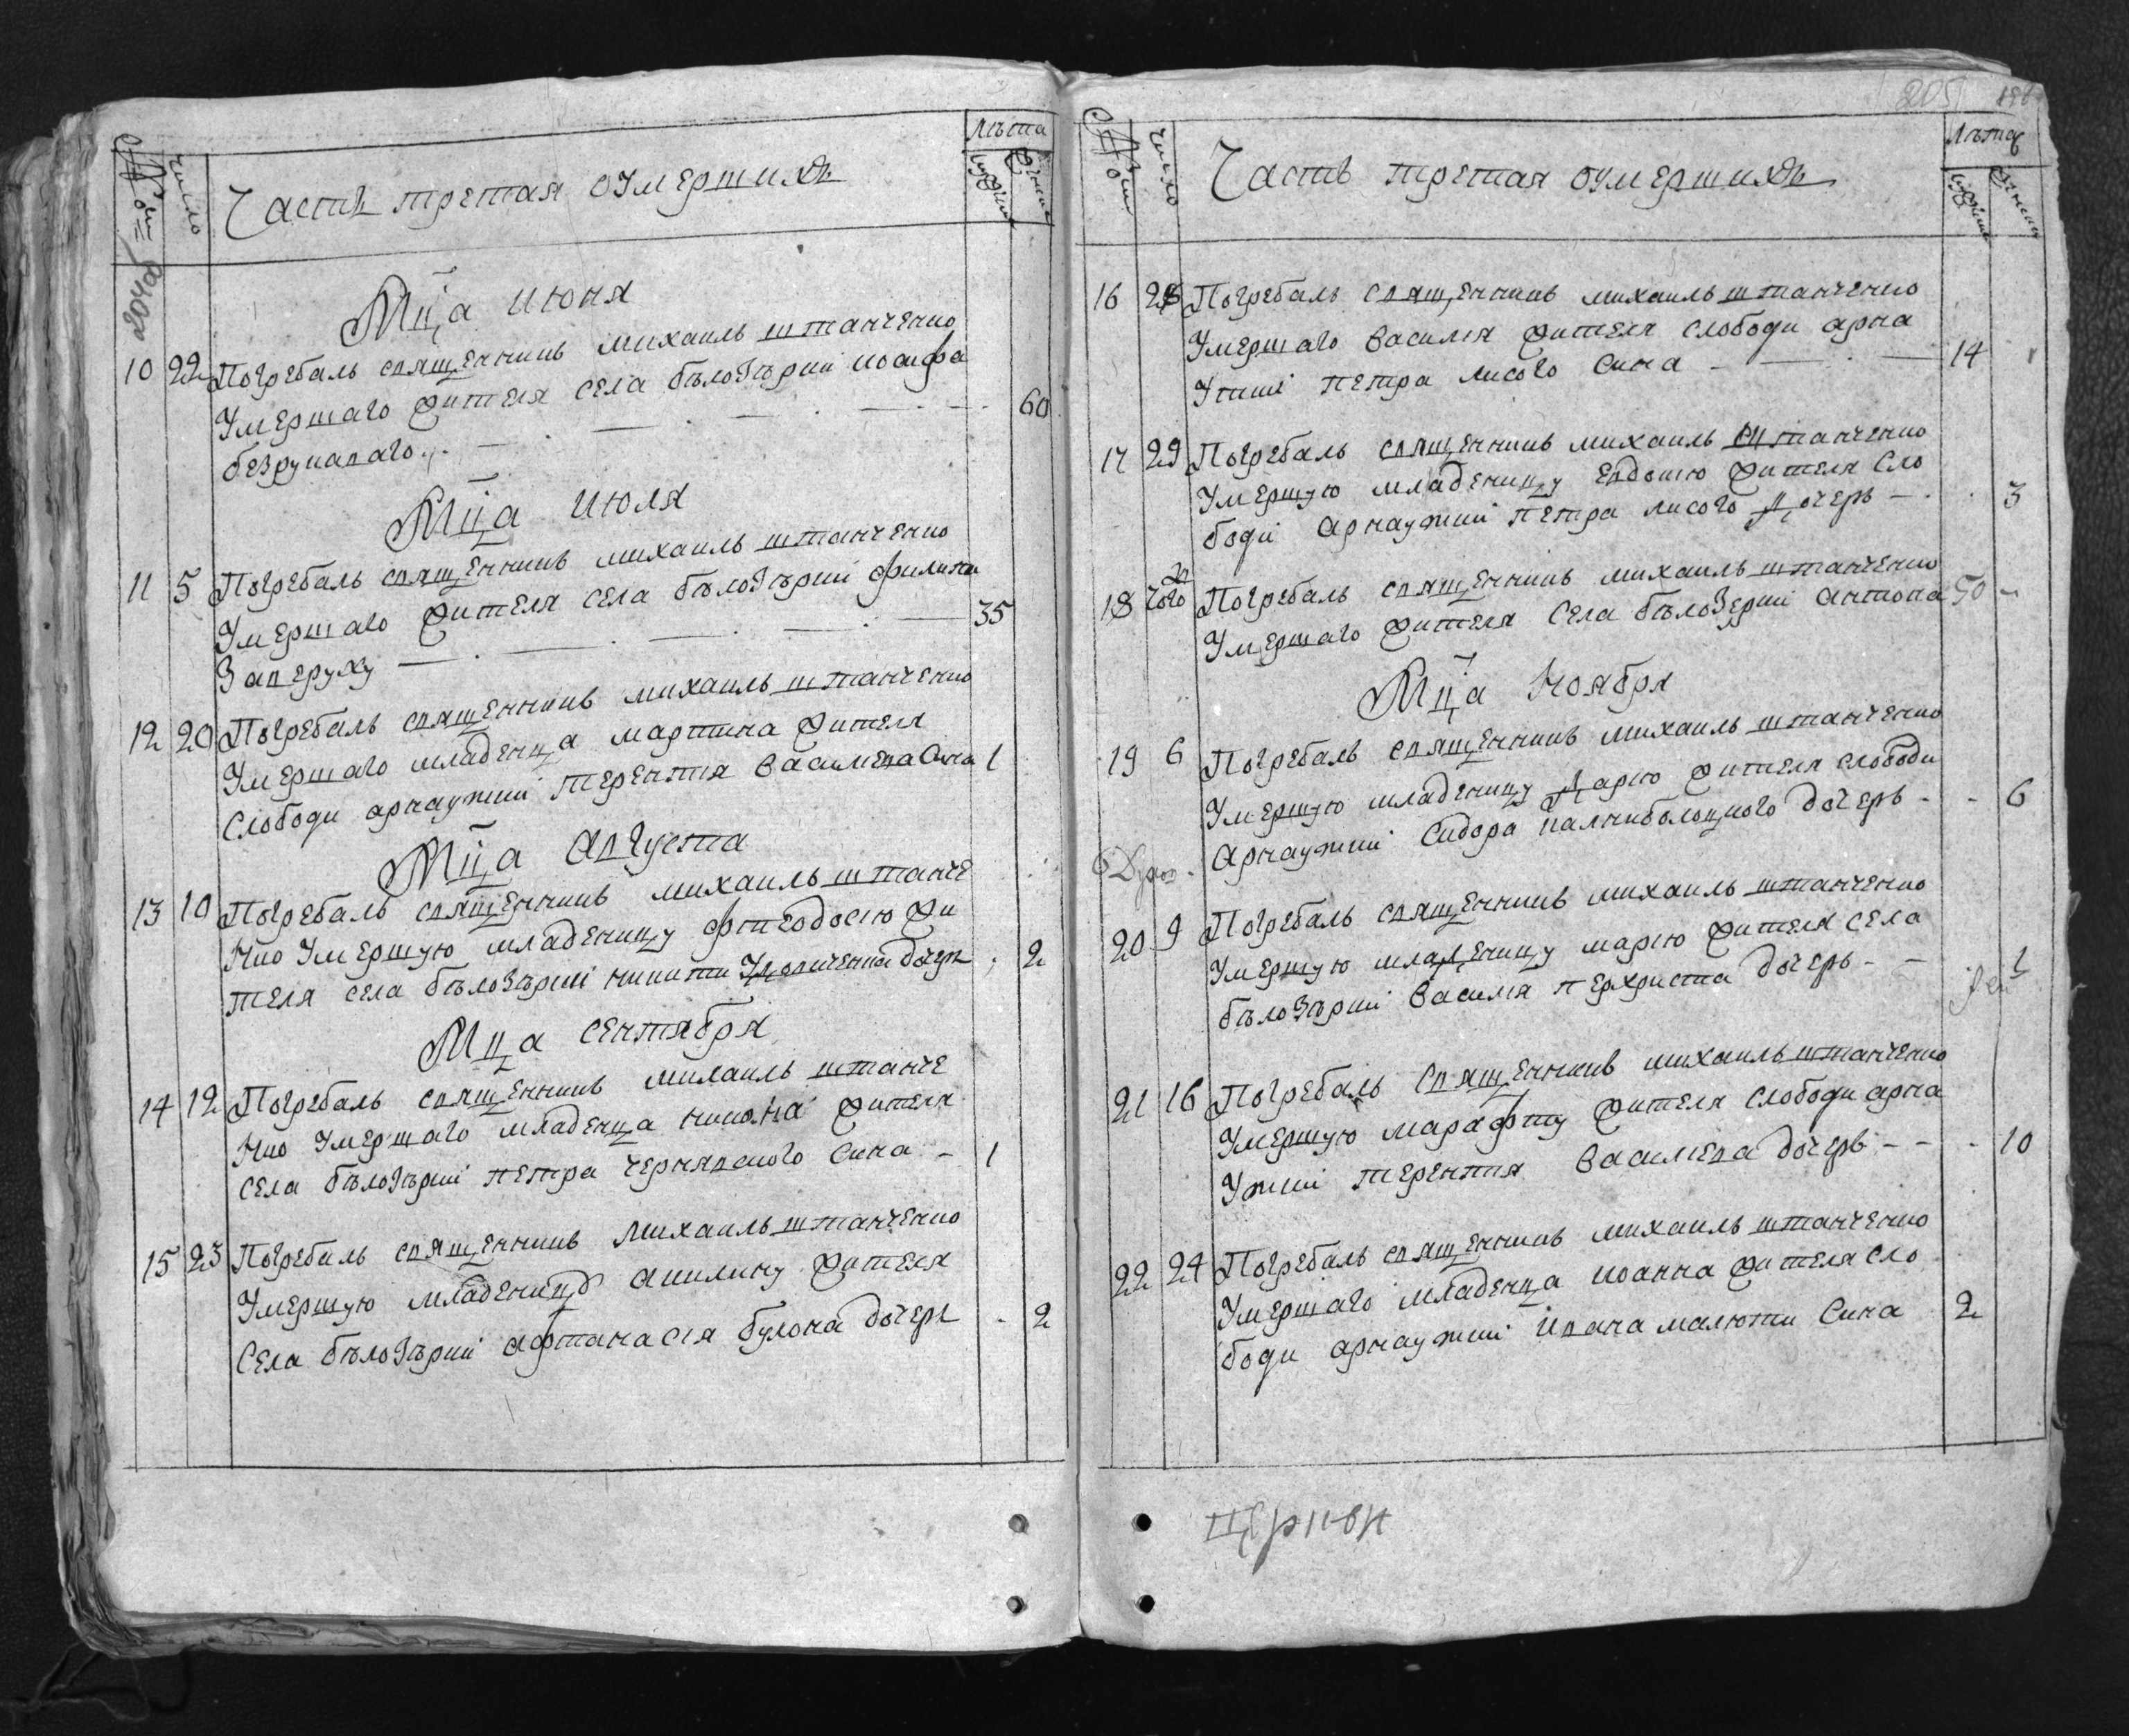 Число
Часть третая оумершихъ
Лѣта
204об
Мца июня
10 22 Погребалъ священникъ михаилъ штанченко
Умершаго жителя села бѣлозѣрки иоаифа
безрукаваго 60
Мца июля
11 5 Погребалъ священникъ михаилъ штанченко
Умершаго жителя села бѣлозѣрки филипа
Заверуху 35
12 20 Погребалъ священникъ михаилъ штанченко
Умершаго младенца мартина жителя
слободи арнаутки терентия василиева сина 1
Мца августа
13 10 Погребалъ священникъ михаилъ штанче
нко Умершую младеницу фтеодосию жи
теля села бѣлозѣрки никити дочерь 2
Мца сентября
14 12 Погребалъ священникъ михаилъ штанче
нко Умершаго младенца никона жителя
села бѣлозѣрки петра чернявского сина - 1
15 23 Погребалъ священникъ михаилъ штанченко
Умершую младеницу акилину жителя
села бѣлозѣрки афтанасия булона дочерь 2
205
Число
Часть третая оумершихъ
Лѣта
16 28 Погребалъ священникъ михаилъ штанченко
Умершаго василия жителя слободи арна
утки петра лисого сина 14
17 29 Погребалъ священникъ михаилъ штанченко
Умершую младеницу евдокию жителя сло
боди арнаутки петра лисого дочерь 3
18 того Погребалъ священникъ михаилъ штанченко
Умершаго жителя села бѣлозерки антона 50
Мца ноября
19 6 Погребалъ священникъ михаилъ штанченко
Умершую младеницу дарию жителя слободи
арнаутки сидора калниболоцкого дочерь 6
20 9 Погребалъ священникъ михаилъ штанченко
Умершую младеницу марию жителя села
бѣлозѣрки василия перхриста дочерь 1
21 16 Погребалъ священникъ михаилъ штанченко
Умершую марафту жителя слободи арна
утки терентия василиева дочерь 10
22 24 Погребалъ священникъ михаилъ штанченко
Умершаго младенца иоанна жителя сло
боди арнаутки ивана малютки сина 2
церкви